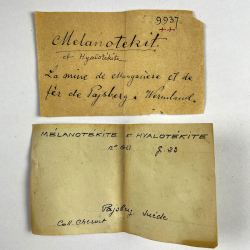 9937.
++
Melanotekit.
et Hyalotékite
La mine de Manganèse et de
fèr de Pajsberg, Wermland.
MELANOTÉKITE et HYALOTÉKITE
g. 33
Pajsberg Suède
Coll. Cheront